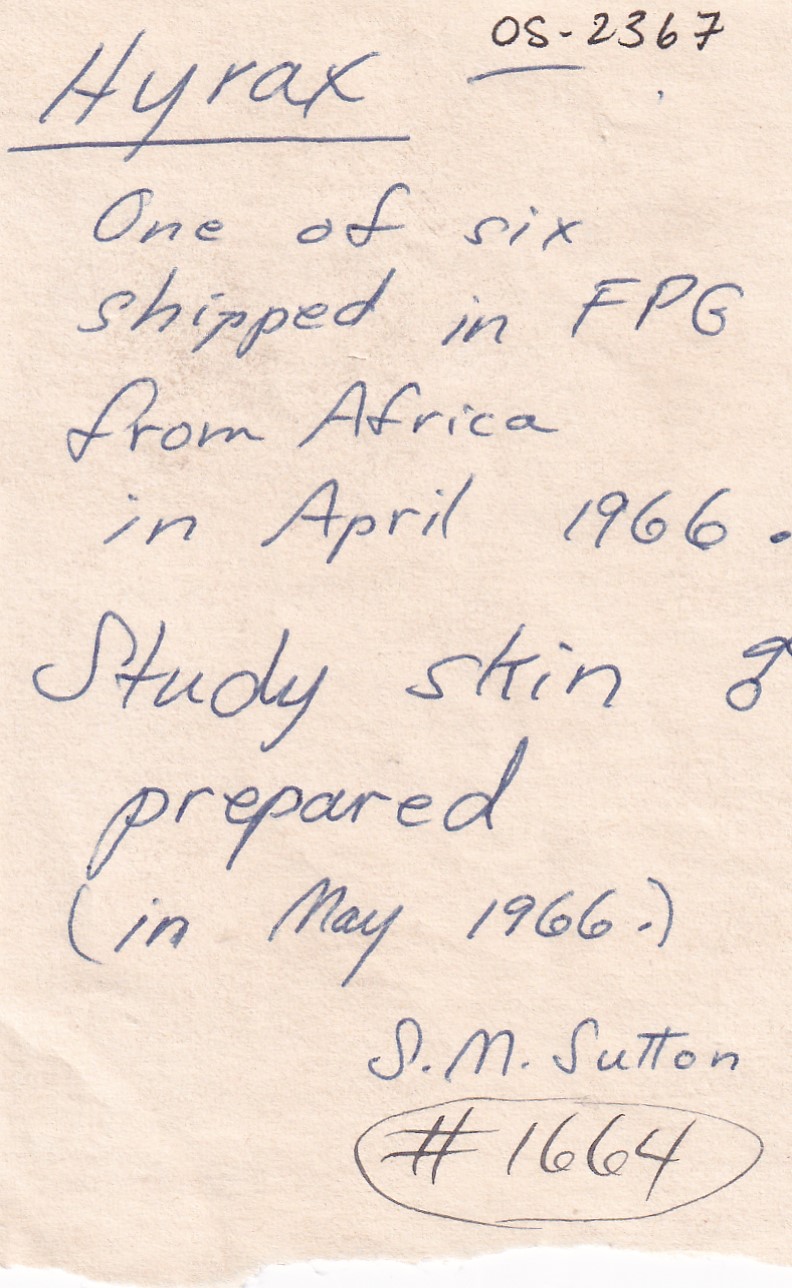 OS-2367
Hyrax
One of six
shipped in FPG
from Africa
in April 1966.
Study skin ♂
prepared
(in May 1966.)
S. M. Sutton
#1664